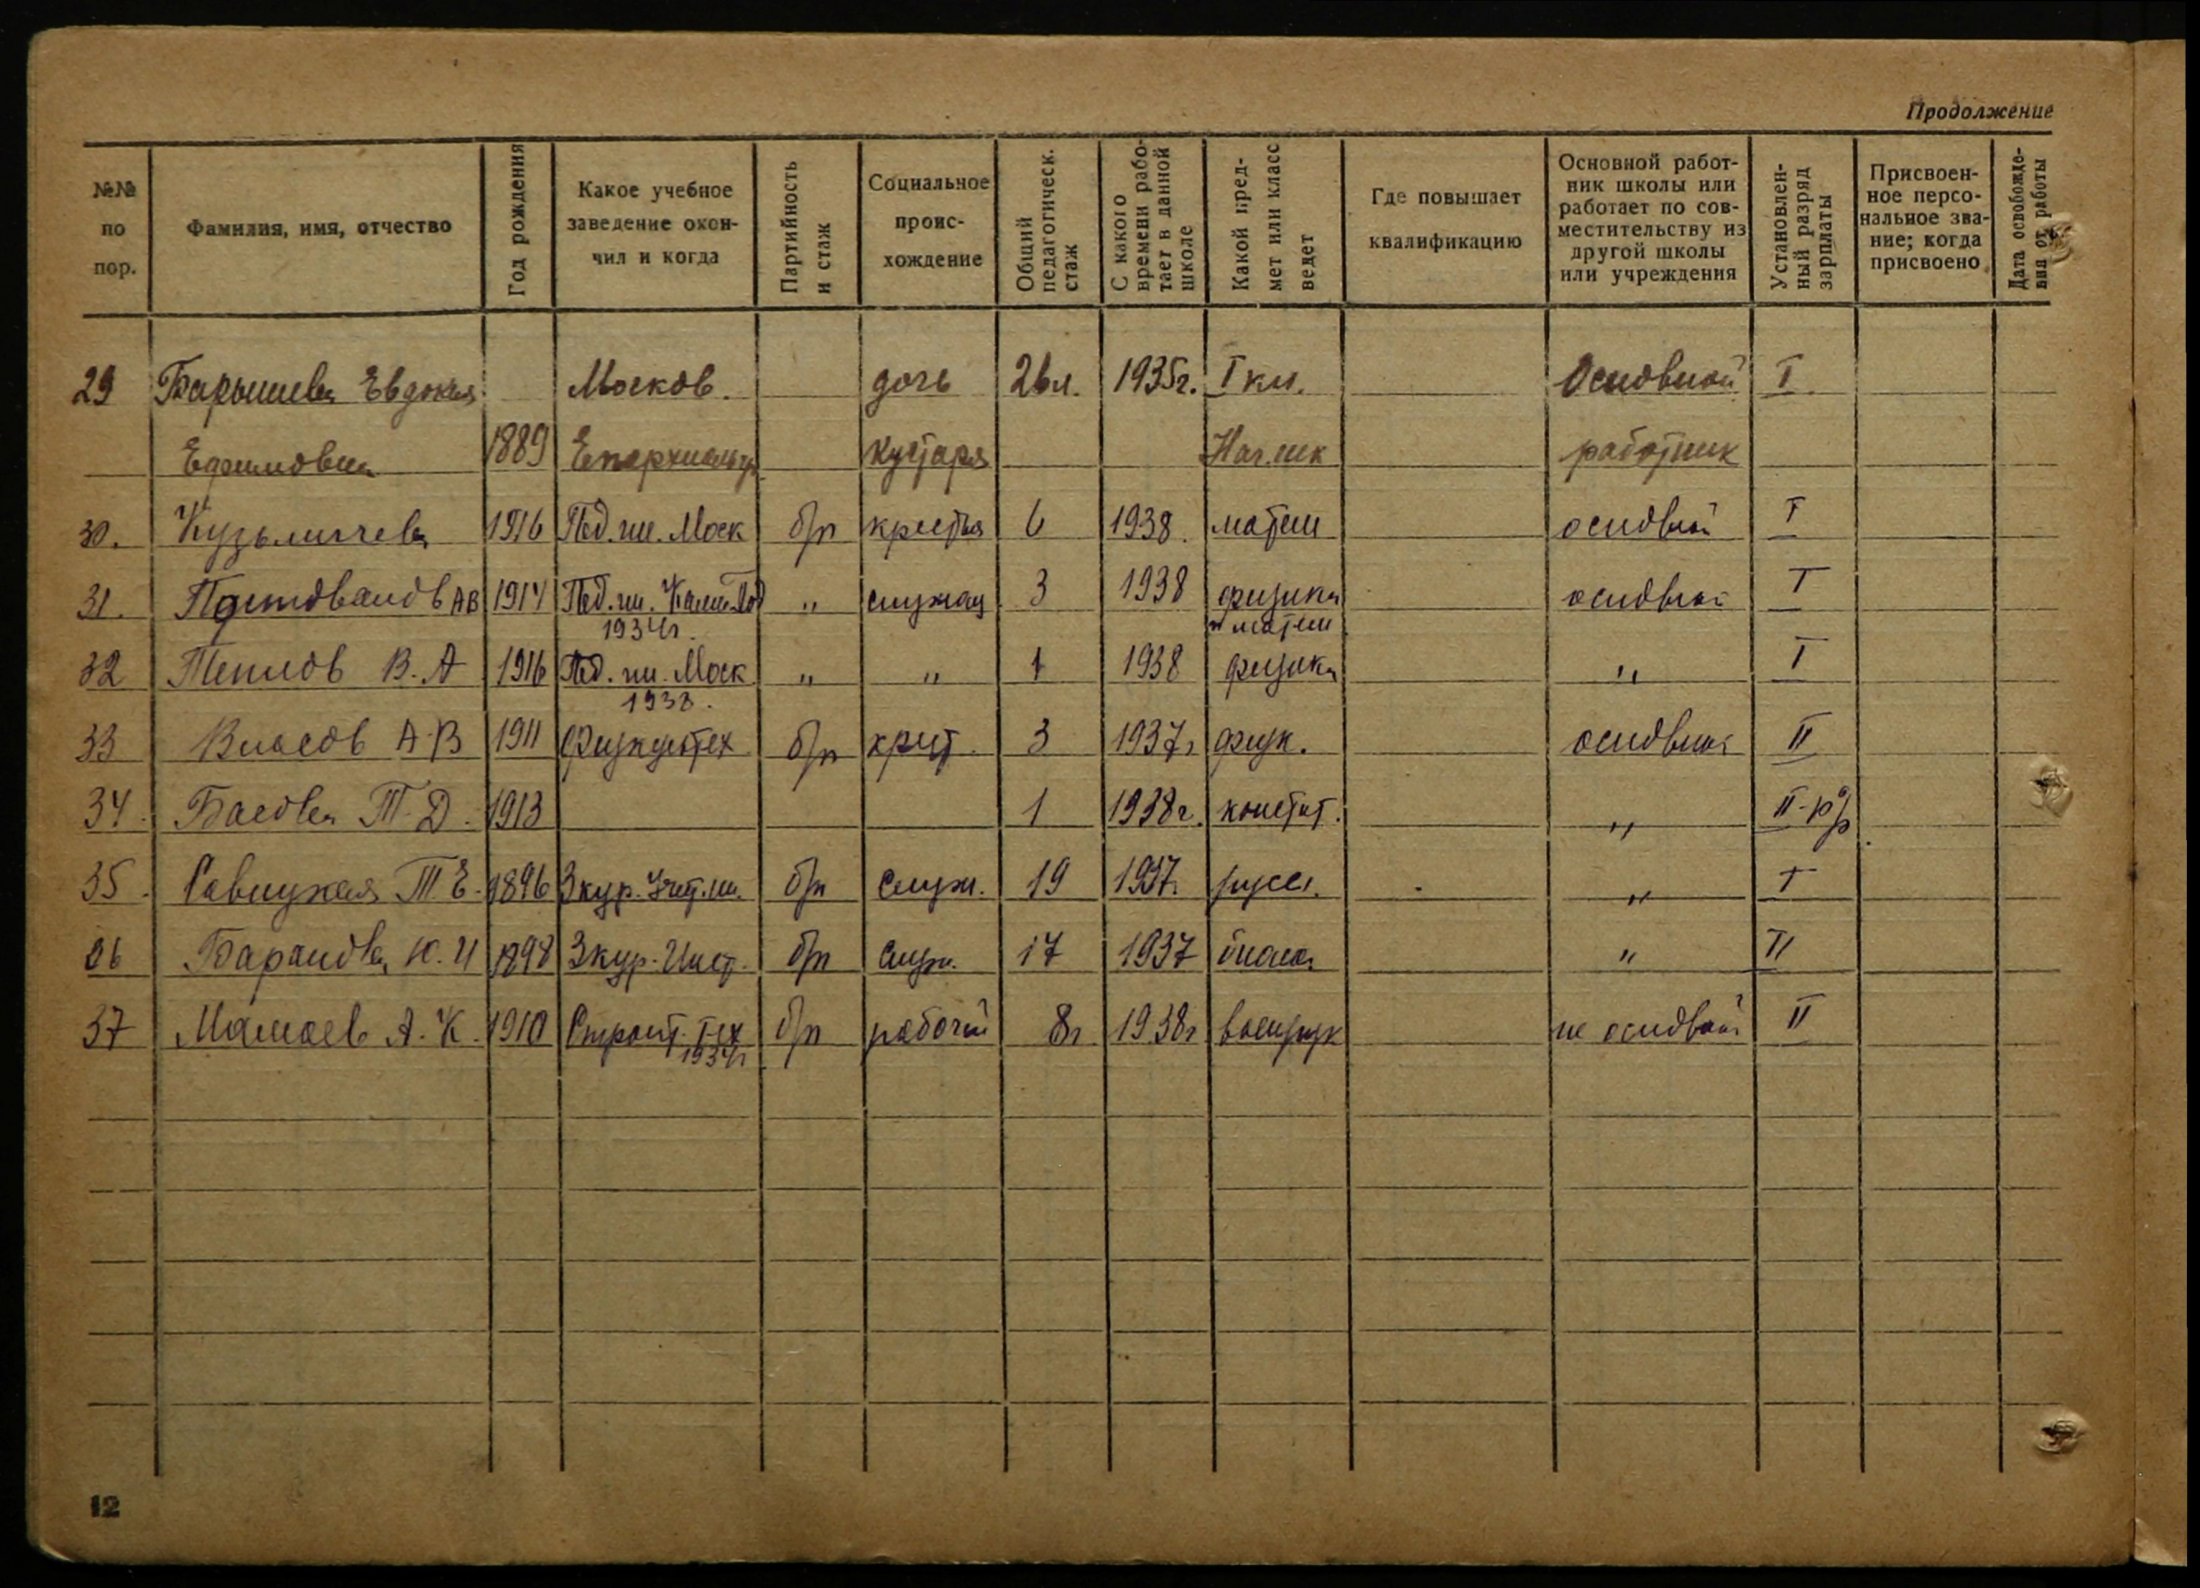 Продолжение
№№ по пор.
Фамилия, имя, отчество
Год рождения
Какое учебное заведение окон- чил и когда
Партийность и стаж
Социальное проис- хождение
Общий педагогическ. стаж
С какого времени рабо- тает в данной школе
Какой пред- мет или класс ведет
Где повышает квалификацию
Основной работ- ник школы или работает по сов- местительству из другой школы или учреждения
Установлен- ный разряд зарплаты
Присвоен- ное персо- нальное зва- ние; когда присвоено
Дата освобожде- ния от работы
29 Барышева Евдокия Москов. дочь 26 л. 1935г. I кл. Основной I
Ефимовна 1889 Епархиальн кустаря Нач.шк работник
30. Кузьмичева 1916 Пед. ин. Моск б/п крестья 6 1938. матем основной I
31. АВ 1914 Пед. ин. " служащ 3 1938 физика основной I
1934г. и матем
32 Теплов В. А 1916 Пед. ин. Моск " " 1 1938 физика " I
1938.
33 Власов А. В 1911 Физкультех б/п крест. 3 1937г физк. основной II
34. Басова Т. Д. 1913 1 1938г. констит. " II
35. Савицкая Т. Е. 1896 3 кур. б/п служ. 19 1937г. русск. " I
36 Баранова К. И 1898 3 кур. б/п служ. 17 1937 биолог " II
37 Мамаев А. К. 1910 Строит. тех б/п рабочий 8г. 1938г военрук не основной II
1934г
12